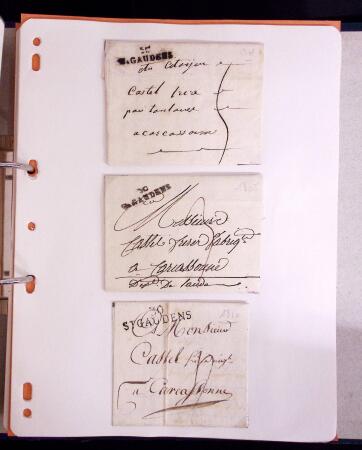 St GAUDENS
au Citoyen
Castel frere
par toulouse
a carcassonne
30
St GAUDENS
Messieurs
Castel frerer fabriqts
a Carcassonne
Dept De l'aude
30
St GAUDENS
Monsieur
Castel
a Carcassonne